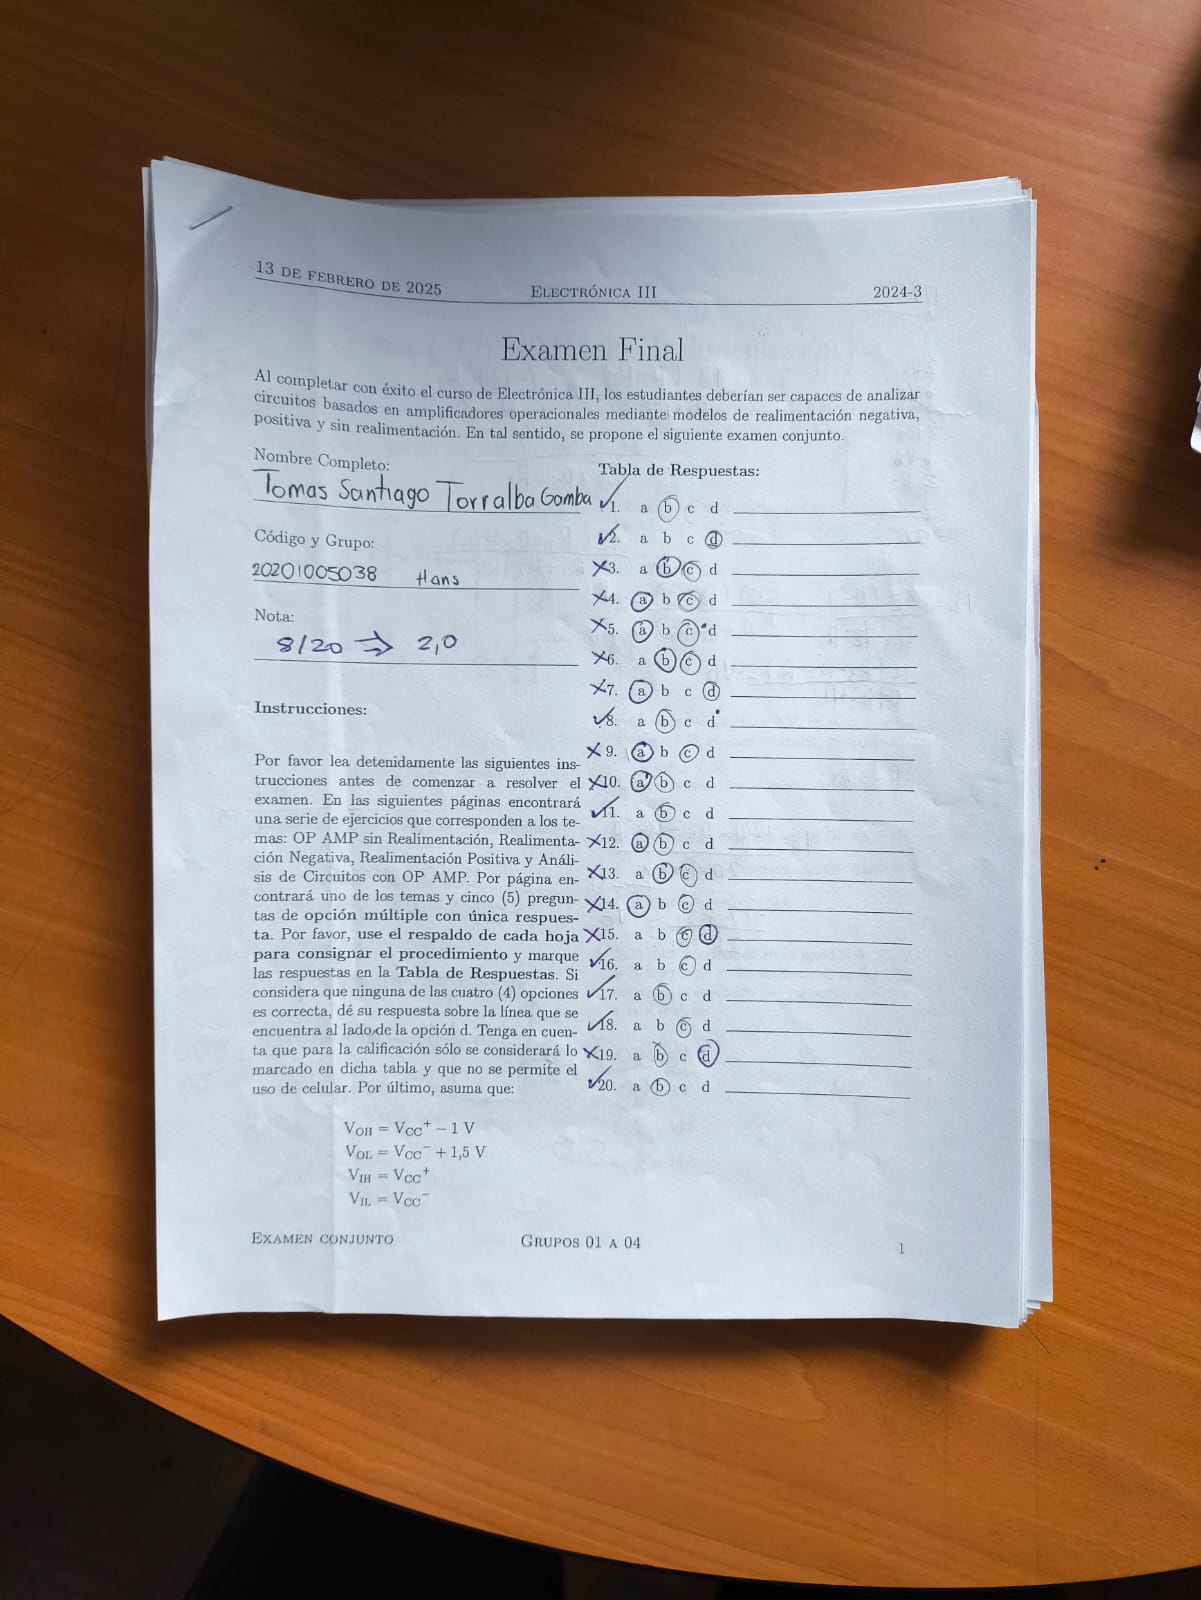 13 DE FEBRERO DE 2025 ELECTRÓNICA III 2024-3
Examen Final
Al completar con éxito el curso de Electrónica III, los estudiantes deberían ser capaces de analizar
circuitos basados en amplificadores operacionales mediante modelos de realimentación negativa,
positiva y sin realimentación. En tal sentido, se propone el siguiente examen conjunto.
Nombre Completo:
Tomas Santiago Torralba Gomba
Código y Grupo:
20201005038 Hans
Nota:
8/20 ⇒ 2,0
Instrucciones:
Por favor lea detenidamente las siguientes ins-
trucciones antes de comenzar a resolver el
examen. En las siguientes páginas encontrará
una serie de ejercicios que corresponden a los te-
mas: OP AMP sin Realimentación, Realimenta-
ción Negativa, Realimentación Positiva y Análi-
sis de Circuitos con OP AMP. Por página en-
contrará uno de los temas y cinco (5) pregun-
tas de opción múltiple con única respues-
ta. Por favor, use el respaldo de cada hoja
para consignar el procedimiento y marque
las respuestas en la Tabla de Respuestas. Si
considera que ninguna de las cuatro (4) opciones
es correcta, dé su respuesta sobre la línea que se
encuentra al lado de la opción d. Tenga en cuen-
ta que para la calificación sólo se considerará lo
marcado en dicha tabla y que no se permite el
uso de celular. Por último, asuma que:
VOH = VCC+ − 1 V
VOL = VCC− + 1,5 V
VIH = VCC+
VIL = VCC−
Tabla de Respuestas:
✓1. a b c d
✓2. a b c d
✗3. a b c d
✗4. a b c d
✗5. a b c d
✗6. a b c d
✗7. a b c d
✓8. a b c d
✗9. a b c d
✗10. a b c d
✓11. a b c d
✗12. a b c d
✗13. a b c d
✗14. a b c d
✗15. a b c d
✓16. a b c d
✓17. a b c d
✓18. a b c d
✗19. a b c d
✓20. a b c d
EXAMEN CONJUNTO GRUPOS 01 A 04 1